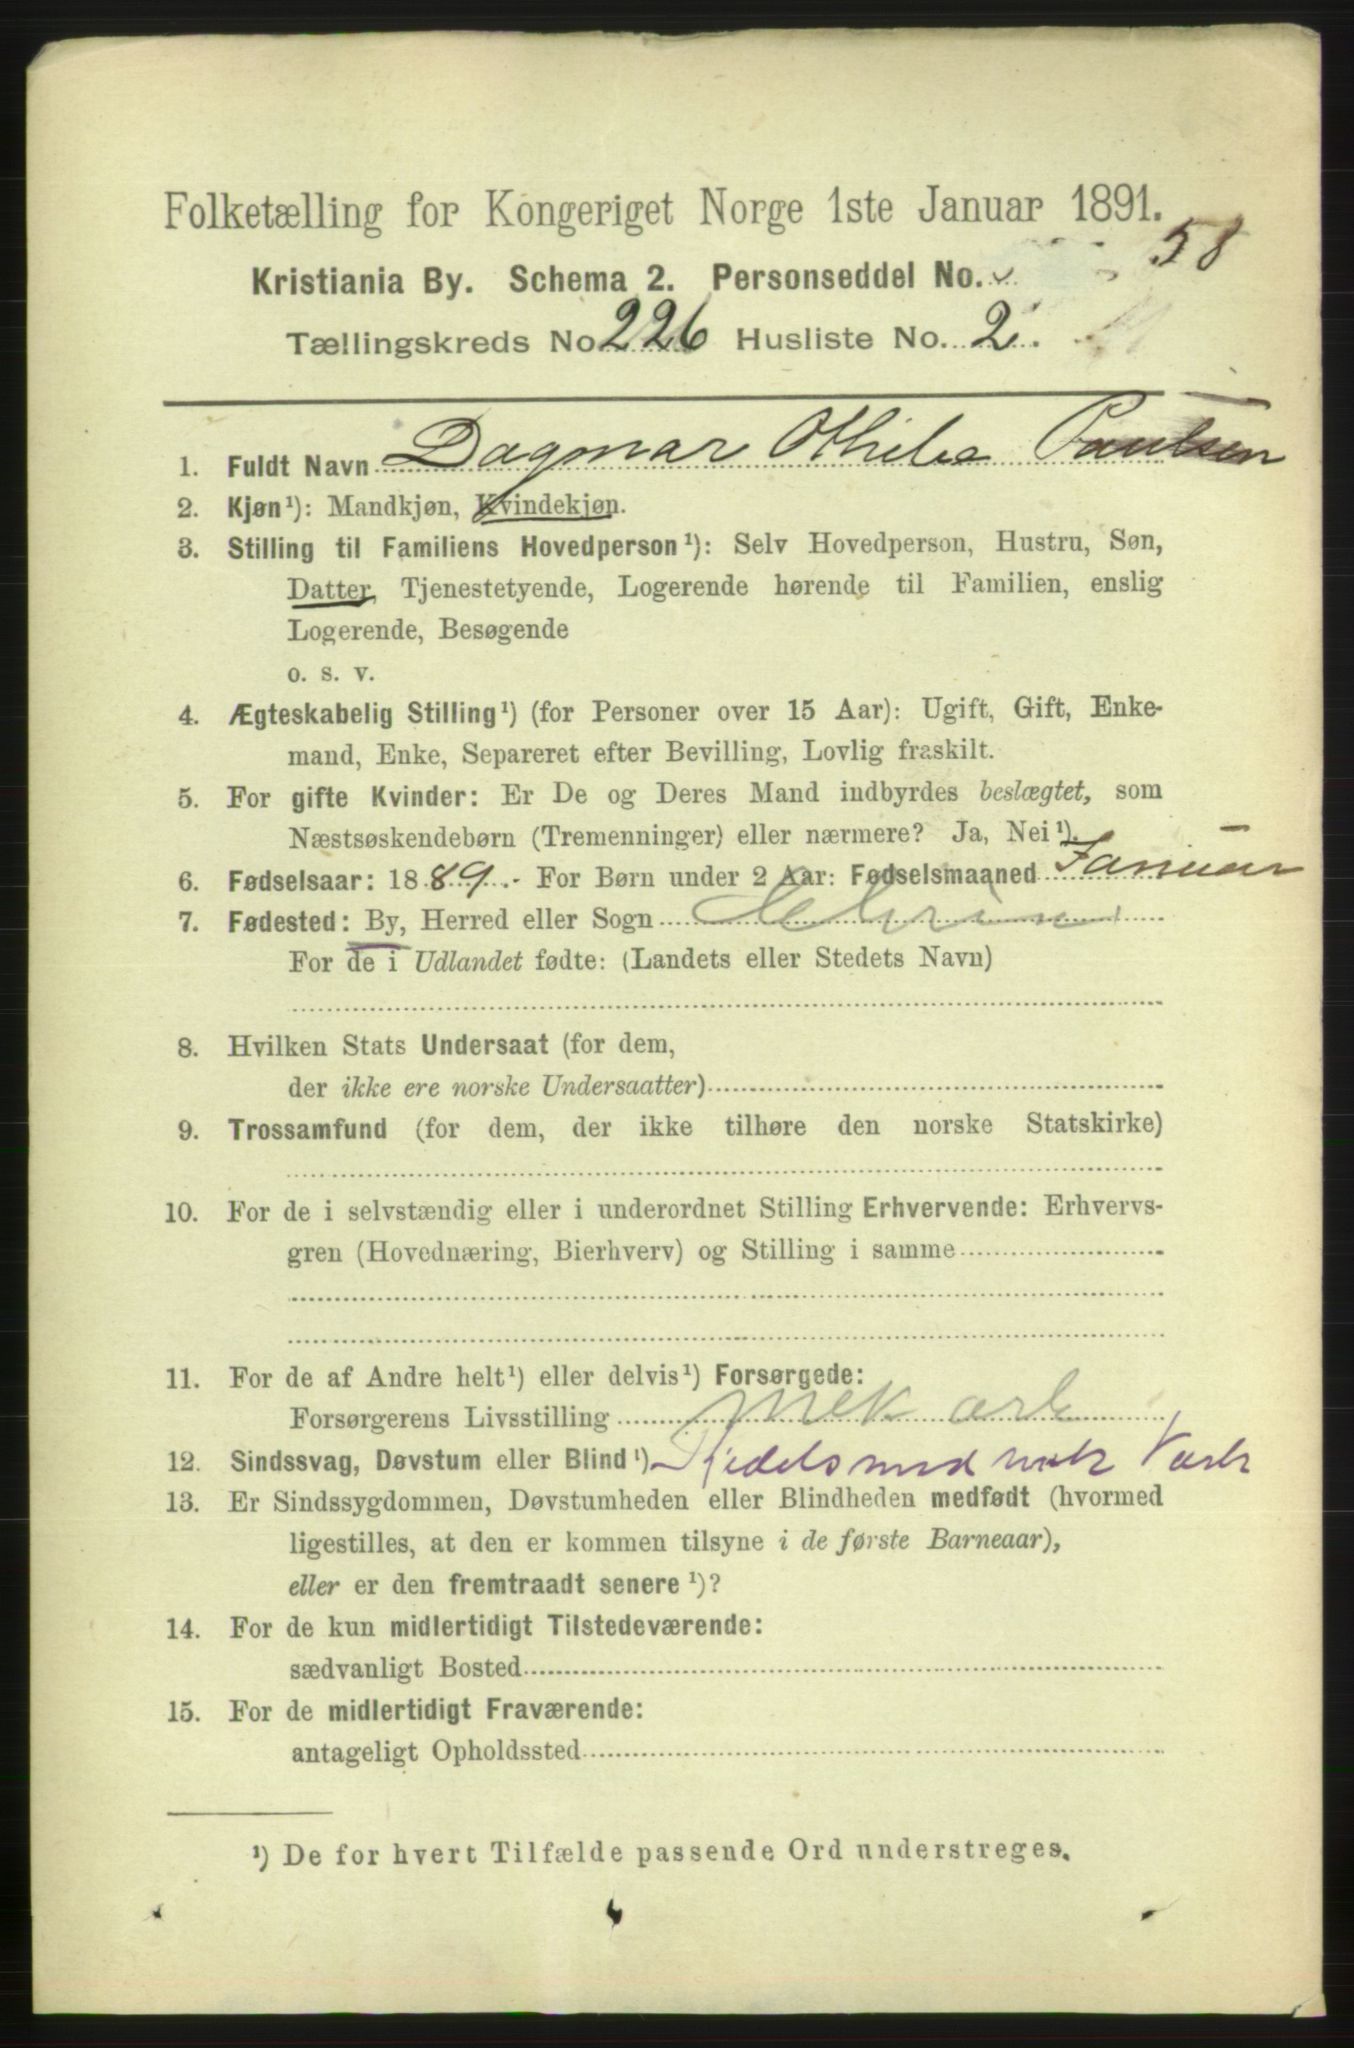 Folketælling for Kongeriget Norge 1ste Januar 1891.
Kristiania By. Schema 2. Personseddel No. 58
Tællingskreds No. 226 Husliste No. 2.
1. Fuldt Navn Dagmar Othilie Paulsen
2. Kjøn¹): Mandkjøn, Kvindekjøn.
3. Stilling til Familiens Hovedperson¹): Selv Hovedperson, Hustru, Søn,
Datter, Tjenestetyende, Logerende hørende til Familien, enslig
Logerende, Besøgende
o. s. v.
4. Ægteskabelig Stilling¹) (for Personer over 15 Aar): Ugift, Gift, Enke-
mand, Enke, Separeret efter Bevilling, Lovlig fraskilt.
5. For gifte Kvinder: Er De og Deres Mand indbyrdes beslægtet, som
Næstsøskendebørn (Tremenninger) eller nærmere? Ja, Nei¹).
6. Fødselsaar: 1889. For Børn under 2 Aar: Fødselsmaaned Januar
7. Fødested: By, Herred eller Sogn
For de i Udlandet fødte: (Landets eller Stedets Navn)
8. Hvilken Stats Undersaat (for dem,
der ikke ere norske Undersaatter)
9. Trossamfund (for dem, der ikke tilhøre den norske Statskirke)
10. For de i selvstændig eller i underordnet Stilling Erhvervende: Erhvervs-
gren (Hovednæring, Bierhverv) og Stilling i samme
11. For de af Andre helt¹) eller delvis¹) Forsørgede:
Forsørgerens Livsstilling Mek arb
12. Sindssvag, Døvstum eller Blind¹) Kjedelsmed mek Værk
13. Er Sindssygdommen, Døvstumheden eller Blindheden medfødt (hvormed
ligestilles, at den er kommen tilsyne i de første Barneaar),
eller er den fremtraadt senere¹)?
14. For de kun midlertidigt Tilstedeværende:
sædvanligt Bosted
15. For de midlertidigt Fraværende:
antageligt Opholdssted
¹) De for hvert Tilfælde passende Ord understreges.